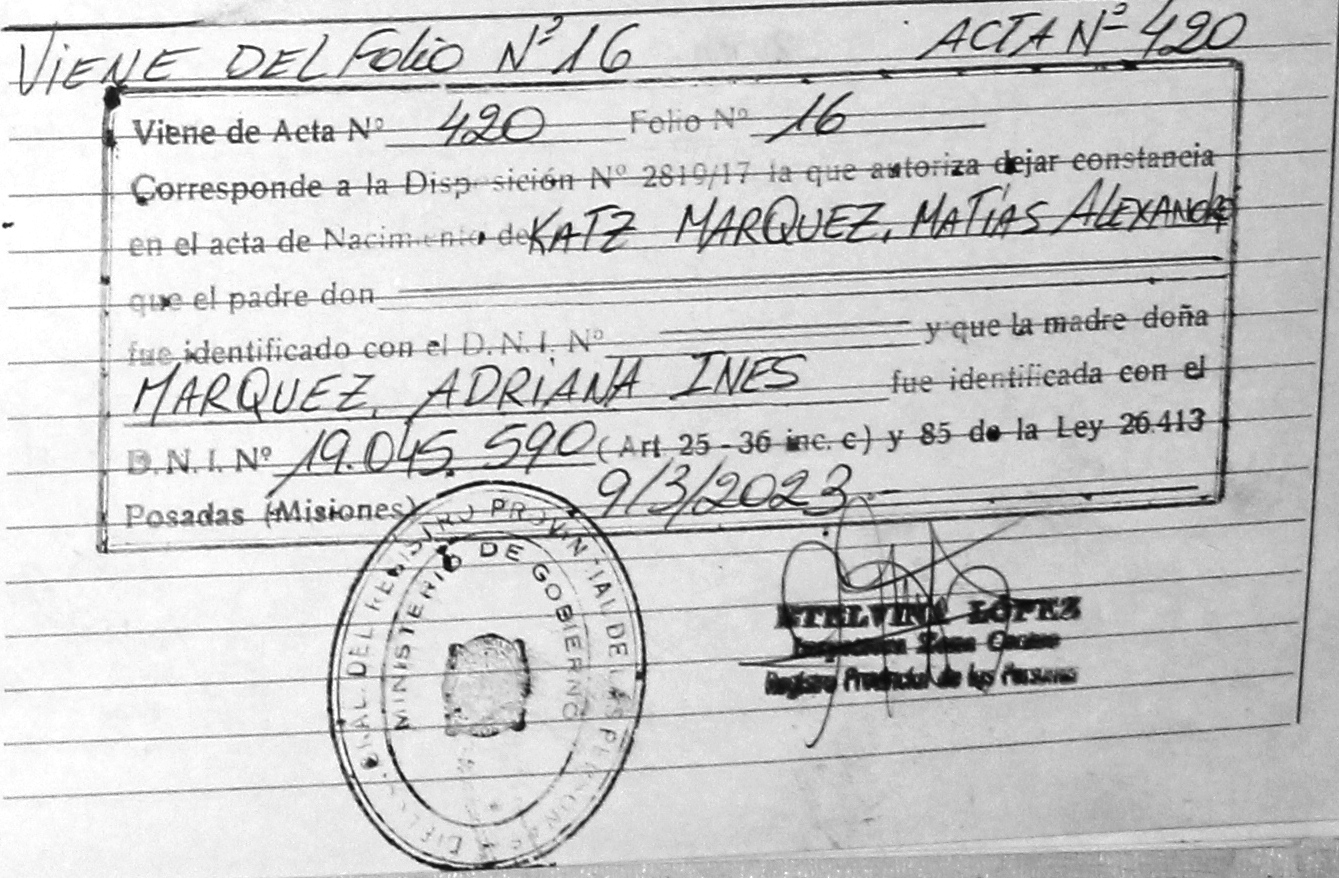 ViENE DEL Folio Nº 16 ACTA Nº 420
Viene de Acta Nº 420 Folio Nº 16
Corresponde a la Disposición Nº 2819/17 la que autoriza dejar constancia
en el acta de Nacimiento de KATZ MARQUEZ, MATíAS ALEXANDE
que el padre don
fue identificado con el D.N.I. Nº y que la madre doña
MARQUEZ, ADRIANA INES fue identificada con el
D.N.I. Nº 19.045.590 (Art. 25 - 36 inc. c) y 85 de la Ley 26.413
Posadas (Misiones) 9/3/2023
GRAL. DEL REGISTRO PROVINCIAL DE LAS PERSONAS
MINISTERIO DE GOBIERNO
ETELVINA LÓPEZ
Registro Provincial de las Personas